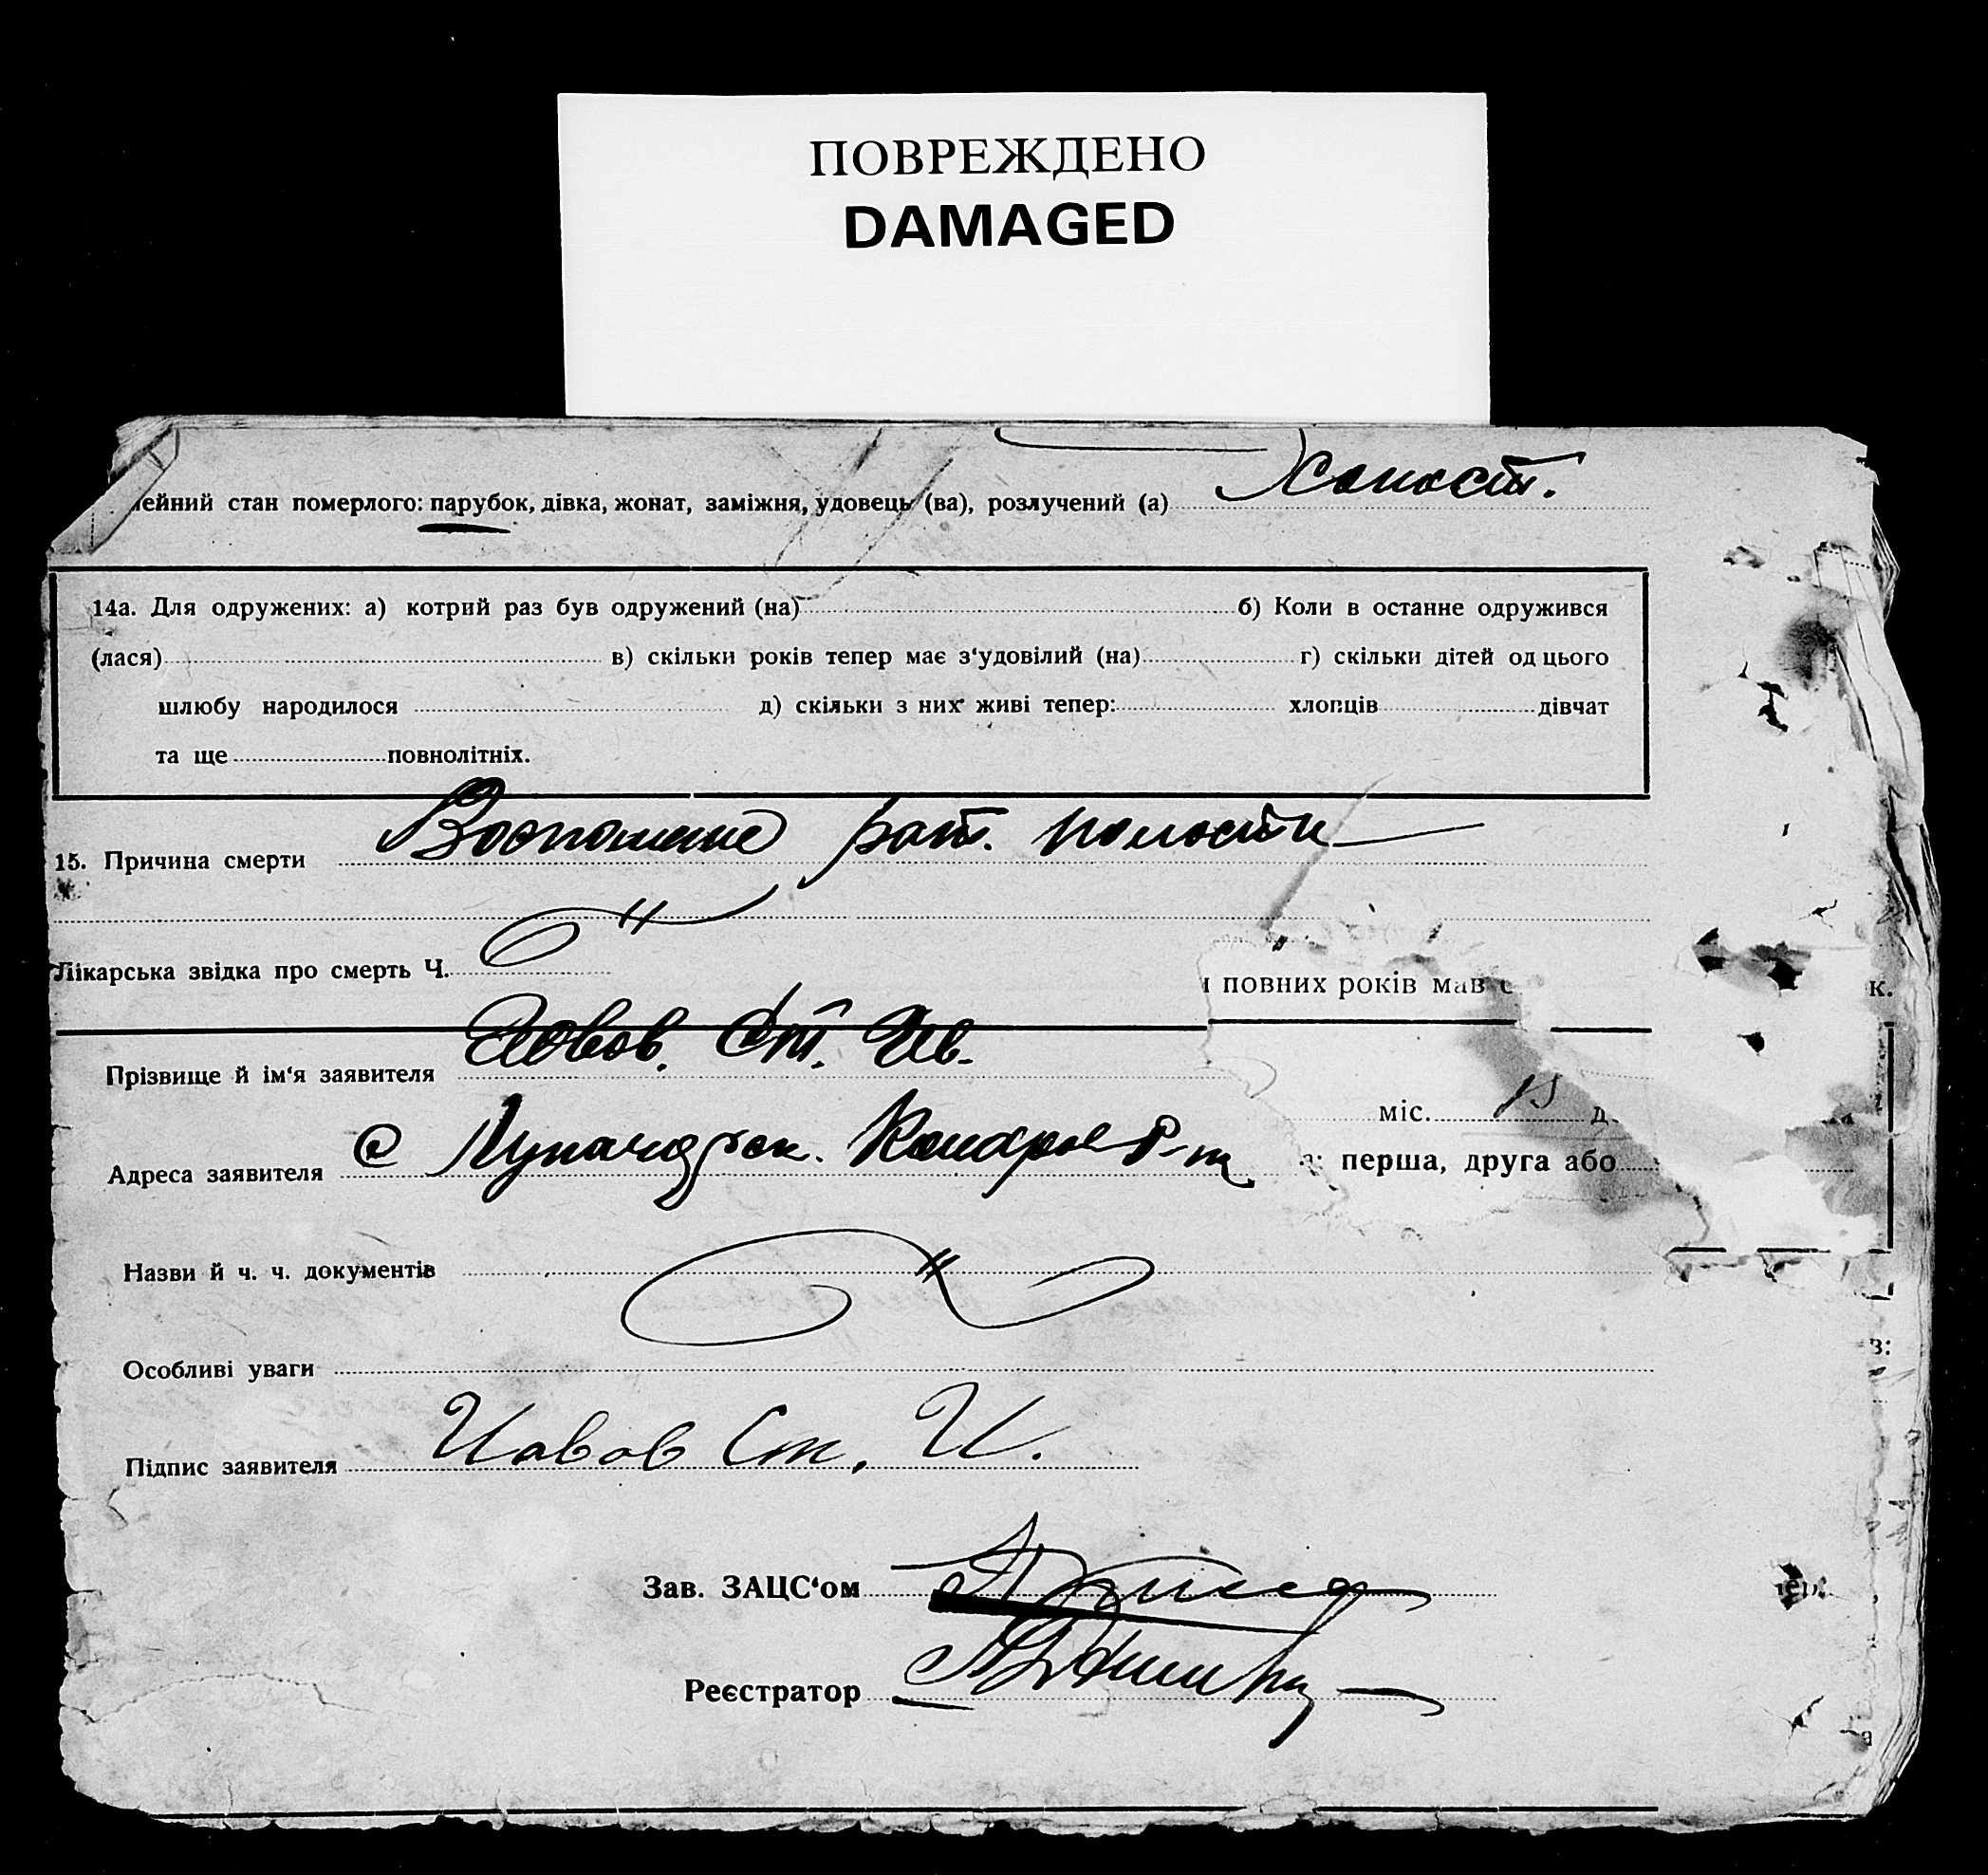 ПОВРЕЖДЕНО
DAMAGED
ейний стан померлого: парубок, дівка, жонат, заміжня, удовець (ва), розлучений (а) Холост.
14а. Для одружених: а) котрий раз був одружений (на) б) Коли в останнє одружився
(лася) в) скільки років тепер має з‘удовілий (на) г) скільки дітей од цього
шлюбу народилося д) скільки з них живі тепер: хлопців дівчат
та ще повнолітніх.
15. Причина смерти Восполение рот. полости
Лікарська звідка про смерть Ч.
повних років мав
к.
Прізвище й ім‘я заявителя Ст. Ив.
міс. 15 д.
Адреса заявителя с Луначарск. Р-на
перша, друга або
Назви й ч. ч. документів
Особливі уваги
в:
Підпис заявителя Иовов Ст. И.
Зав. ЗАЦС‘ом
Реєстратор